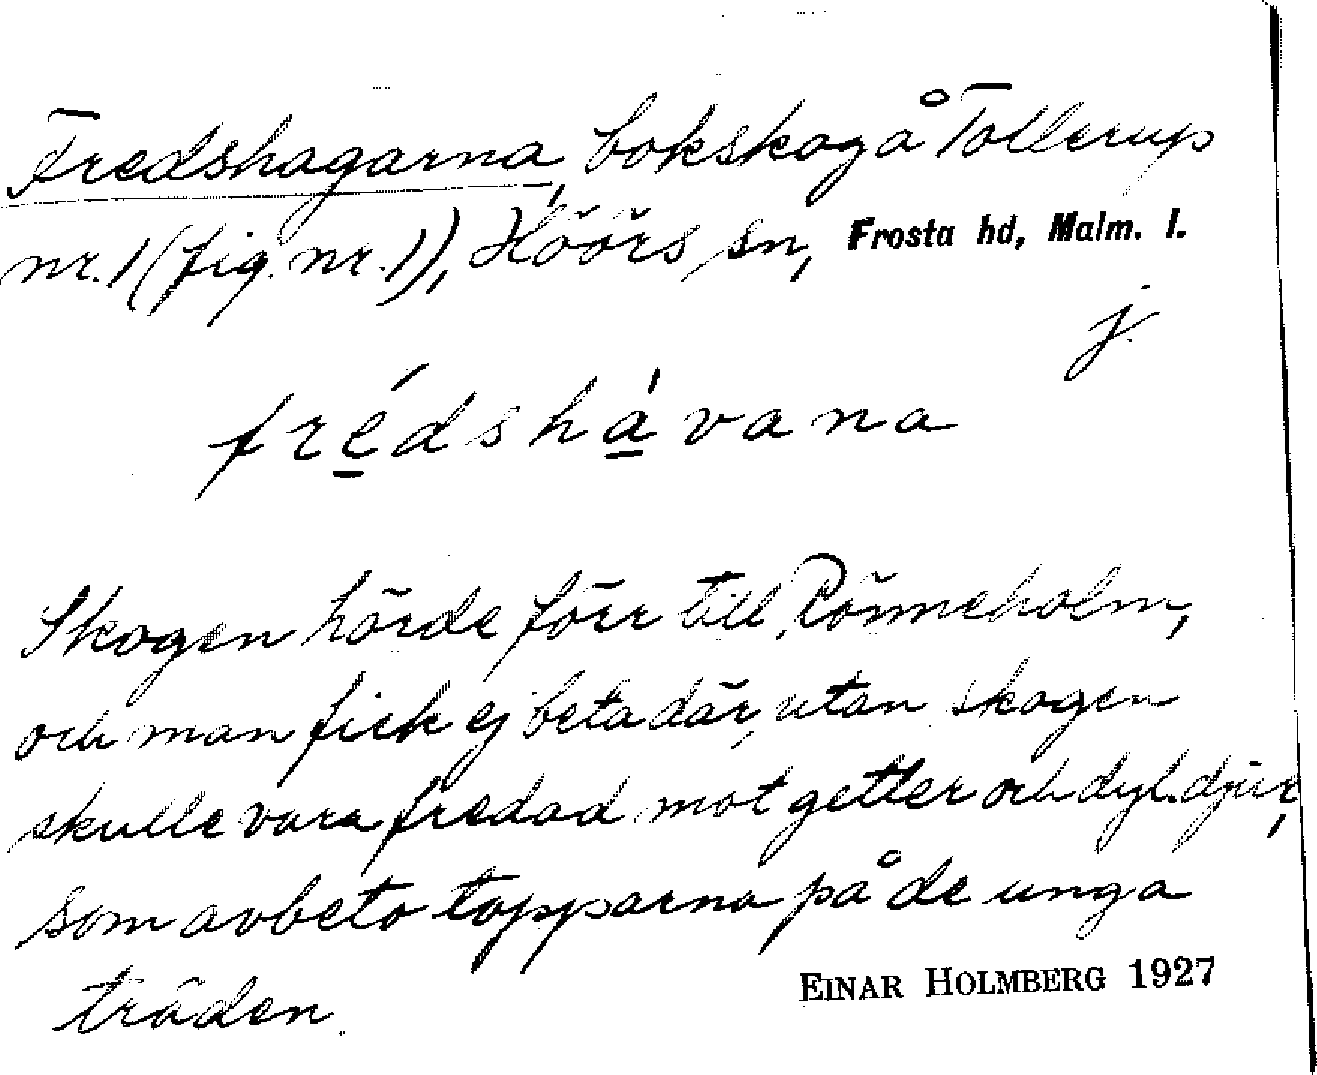 Fredshagarna, bokskog å Tollerup
nr. 1 (fig. nr. 1), Höörs sn, Frosta hd, Malm. l.
j.
frédshávana
Skogen hörde förr till Rönneholm,
och man fick ej beta där, utan skogen
skulle vara fredad mot getter och dyl. djur,
som avbeto topparna på de unga
träden.
EINAR HOLMBERG 1927